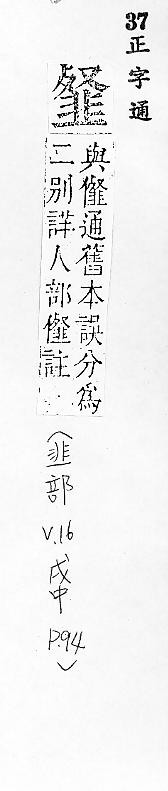 37
正字通
韰
與㒠通舊本誤分爲
二別詳人部㒠註
(韭部 V.16 戌中 P.94)